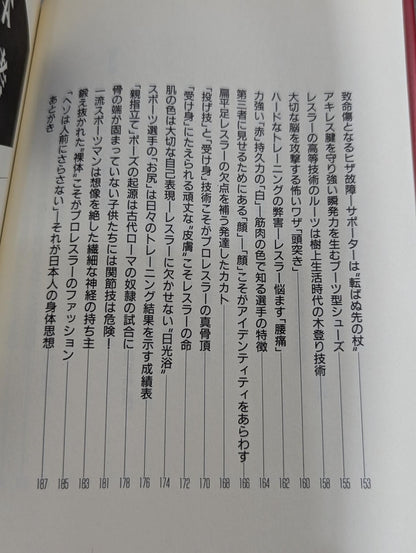 致命傷となるヒザ故障―サポーターは“転ばぬ先の杖”――153
アキレス腱を守り強い瞬発力を生むブーツ型シューズ――155
レスラーの高等技術のルーツは樹上生活時代の木登り技術――158
大切な脳を攻撃する怖いワザ「頭突き」――160
ハードなトレーニングの弊害―レスラー悩ます「腰痛」――162
力強い「赤」持久力の「白」―筋肉の色で知る選手の特徴――164
第三者に見せるためにある「顔」―「顔」こそがアイデンティティをあらわす――166
扁平足レスラーの欠点を補う発達したカカト――168
「投げ技」と「受け身」技術こそがプロレスラーの真骨頂――170
「受け身」にたえられる頑丈な“皮膚”こそレスラーの命――172
肌の色は大切な自己表現―レスラーに欠かせない“日光浴”――174
スポーツ選手の「お尻」は日々のトレーニング結果を示す成績表――176
「親指立て」ポーズの起源は古代ローマの奴隷の試合に――178
骨の端が固まっていない子供たちには関節技は危険！――181
一流スポーツマンは想像を絶した繊細な神経の持ち主――183
鍛え抜かれた“裸体”こそがプロレスラーのファッション――185
「ヘソ」は人前にさらさない」―それが日本人の身体思想――187
あとがき